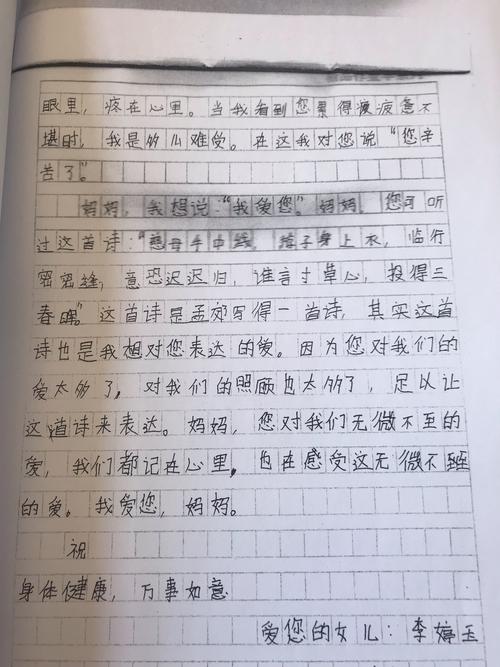 眼里，疼在心里。当我看到您累得疲惫不
堪时，我是多么难受。在这我对您说“您辛
苦了”。
妈妈，我想说：“我爱您”。妈妈，您可听
过这首诗：“慈母手中线，游子身上衣，临行
密密缝，意恐迟迟归，谁言寸草心，报得三
春晖”这首诗是孟郊写得一首诗，其实这首
诗也是我想对您表达的爱。因为您对我们的
爱太多了，对我们的照顾也太多了，足以让
这首诗来表达。妈妈，您对我们无微不至的
爱，我们都记在心里，也在感受这无微不至
的爱。我爱您，妈妈。
祝
身体健康，万事如意
爱您的女儿：李婷玉